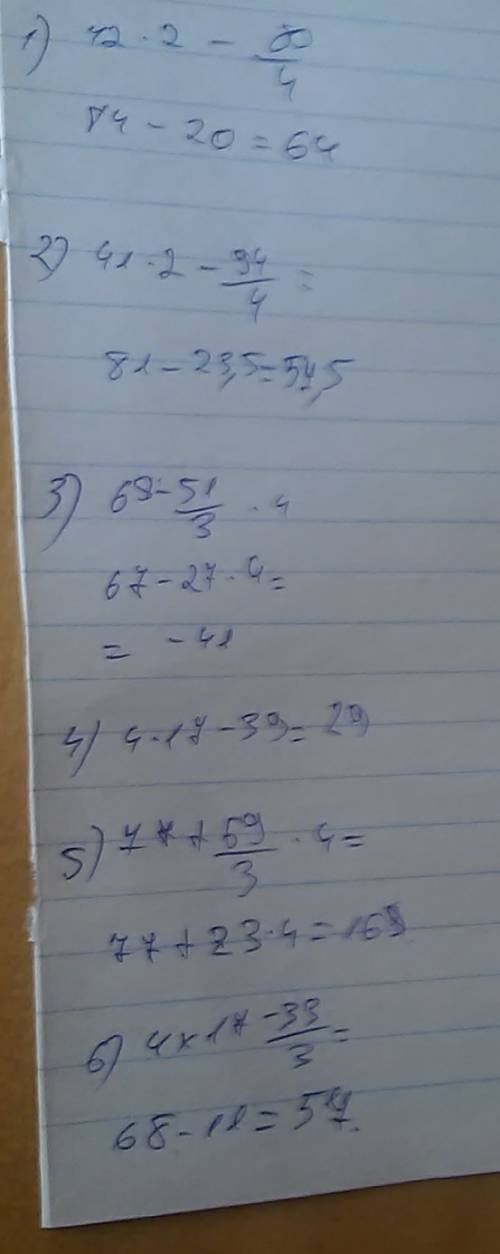 1) 42 · 2 - 80/4
84 - 20 = 64
2) 41 · 2 - 94/4 =
81 - 23,5 = 57,5
3) 68 - 51/3 · 4
67 - 27 · 4 =
= - 41
4) 4 · 17 - 39 = 29
5) 77 + 69/3 · 4 =
77 + 23 · 4 = 169
6) 4 x 17 - 33/3 =
68 - 11 = 57.